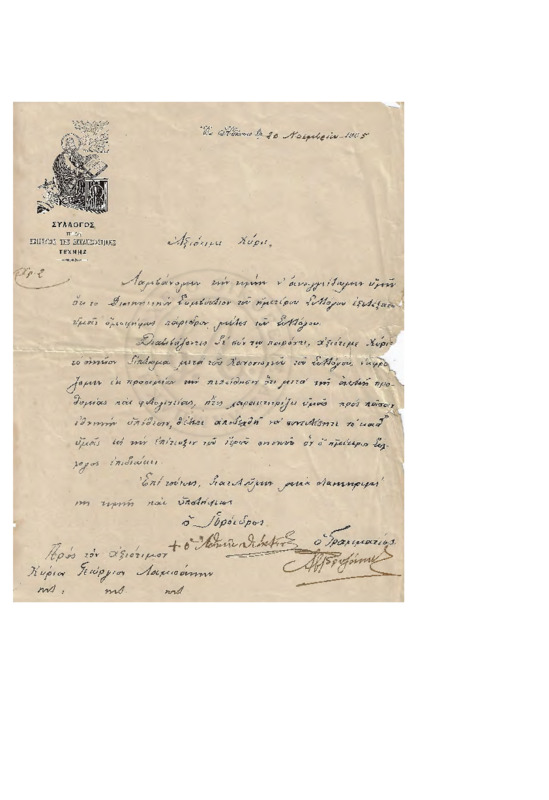 Ἐν Ἀθήναις τῇ 20 Νοεμβρίου 1905
ΣΥΛΛΟΓΟΣ
ΤΕΧΝΗΣ
Ἀξιότιμε Κύριε,
Λαμβάνομεν τὴν τιμὴν ν' ἀναγγείλωμεν ὑμῖν
ὅτι τὸ Διοικητικὸν Συμβούλιον τοῦ ἡμετέρου Συλλόγου ἐξελέξατο
ὑμᾶς ὁμοφώνως πάρεδρον μέλος τοῦ Συλλόγου.
Διαβιβάζοντες δὲ σὺν τῷ παρόντι, ἀξιότιμε Κύριε
τὸ οἰκεῖον δίπλωμα μετὰ τοῦ Κανονισμοῦ τοῦ Συλλόγου, ἐκφρά-
ζομεν τὴν πεποίθησιν ὅτι μετὰ τῆς προ-
θυμίας καὶ φιλοτιμίας, ἥτις χαρακτηρίζει ὑμᾶς πρὸς πᾶσαν
ἐθνικὴν ὑπόθεσιν, θέλετε
ὑμᾶς εἰς τὴν ἐπίτευξιν τοῦ ἱεροῦ σκοποῦ ὃν ὁ ἡμέτερος Σύλ-
λογος ἐπιδιώκει.
Ἐπὶ τούτοις, διατελοῦμεν μετὰ
τιμῆς καὶ ὑπολήψεως
ὁ Πρόεδρος ὁ Γραμματεὺς
Πρὸς τὸν ἀξιότιμον
Κύριον Γεώργιον Λαμπάκην